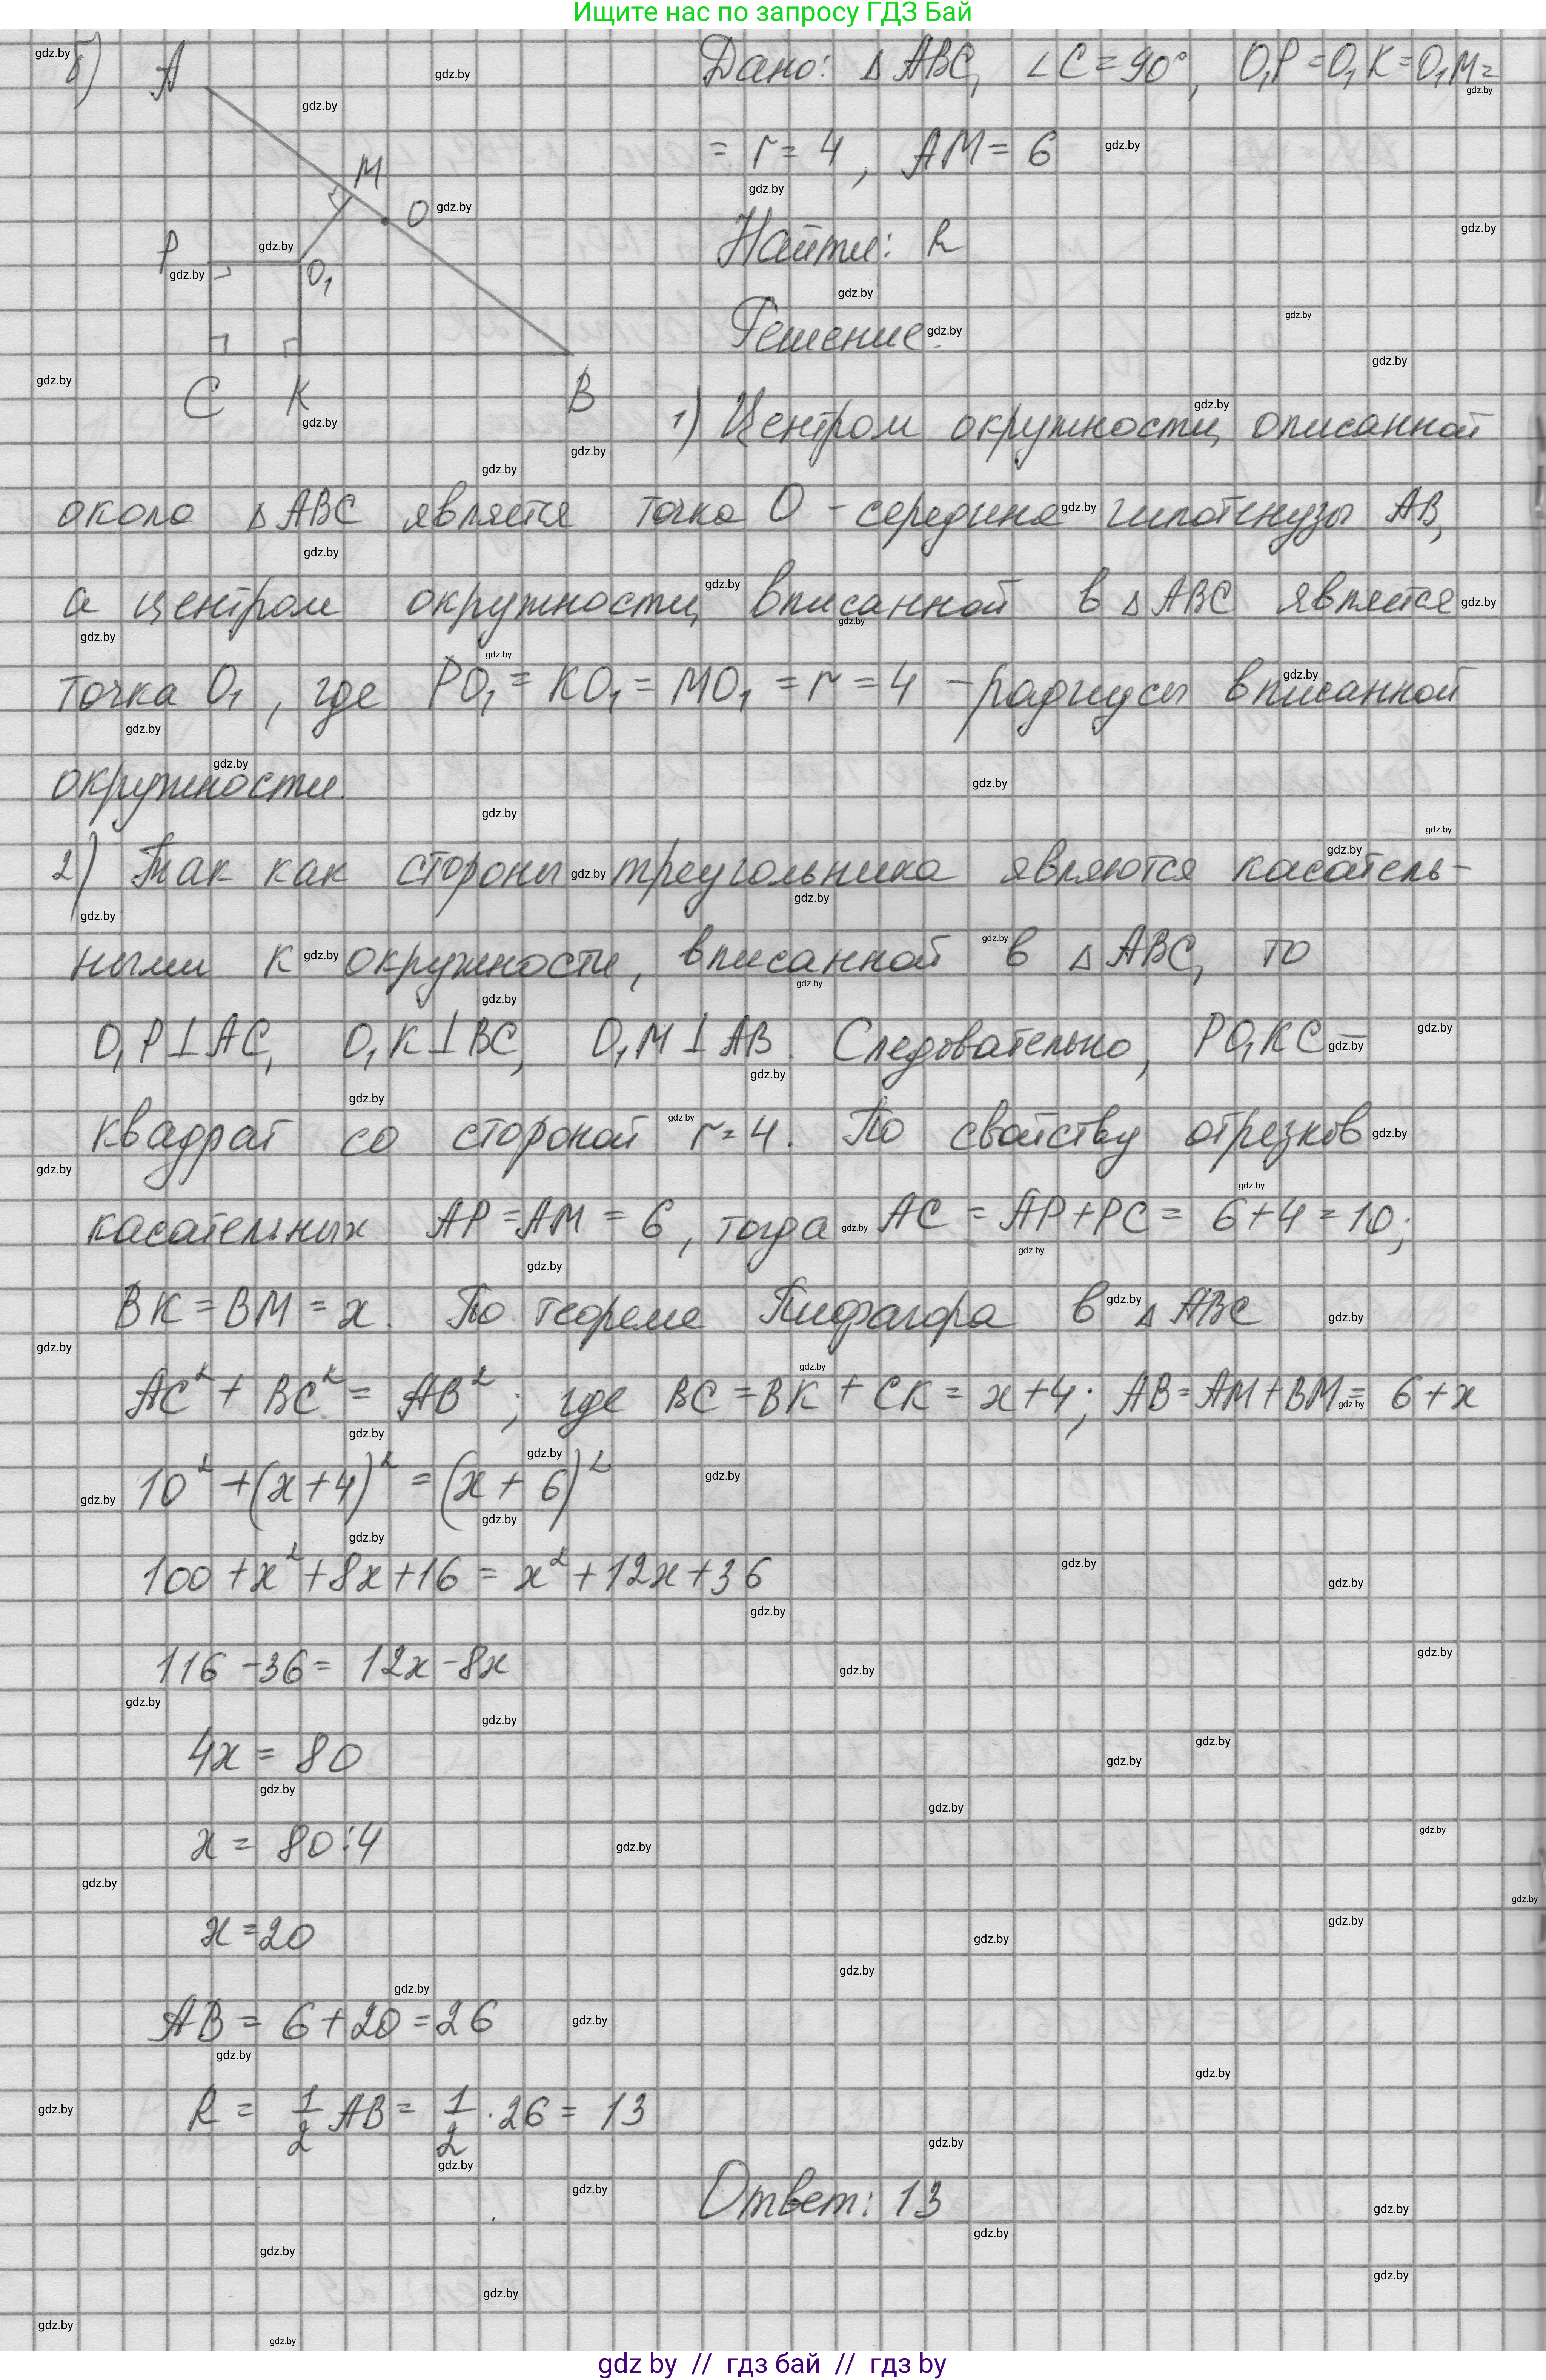 Ищите нас по запросу ГДЗ Бай
б) A M O P O₁ C K B
Дано: △ABC, ∠C = 90°, O₁P = O₁K = O₁M =
= r = 4, AM = 6
Найти: R
Решение:
1) Центром окружности, описанной
около △ABC является точка O - середина гипотенузы AB,
а центром окружности, вписанной в △ABC является
точка O₁, где PO₁ = KO₁ = MO₁ = r = 4 - радиусы вписанной
окружности.
2) Так как стороны треугольника являются касатель-
ными к окружности, вписанной в △ABC, то
O₁P⊥AC, O₁K⊥BC, O₁M⊥AB. Следовательно, PO₁KC -
квадрат со стороной r = 4. По свойству отрезков
касательных AP = AM = 6, тогда AC = AP + PC = 6 + 4 = 10;
BK = BM = x. По теореме Пифагора в △ABC
AC² + BC² = AB²; где BC = BK + CK = x + 4; AB = AM + BM = 6 + x
10² + (x + 4)² = (x + 6)²
100 + x² + 8x + 16 = x² + 12x + 36
116 - 36 = 12x - 8x
4x = 80
x = 80 : 4
x = 20
AB = 6 + 20 = 26
R = 1/2 AB = 1/2 · 26 = 13
Ответ: 13
gdz by // гдз бай // гдз by